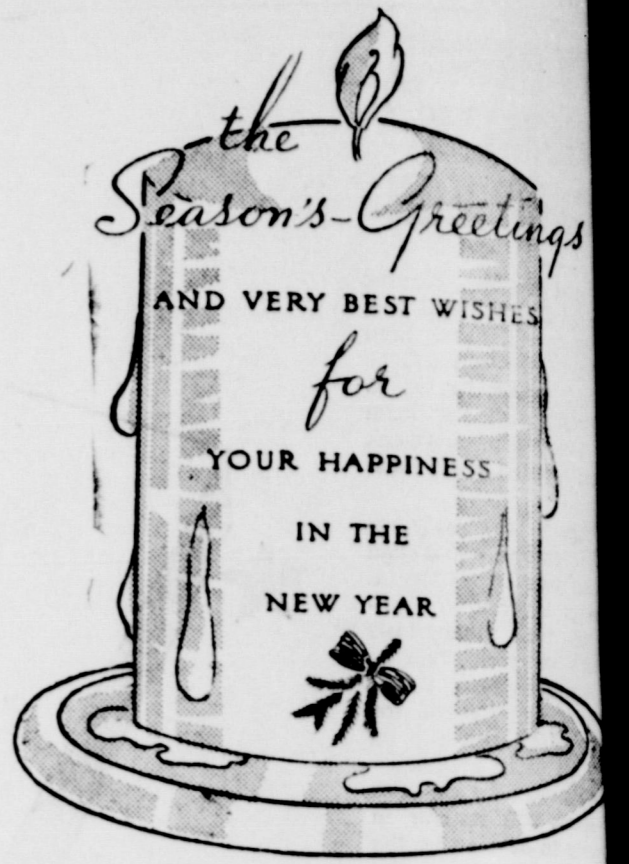 the
Season's-Greetings
AND VERY BEST WISHES
for
YOUR HAPPINESS
IN THE
NEW YEAR